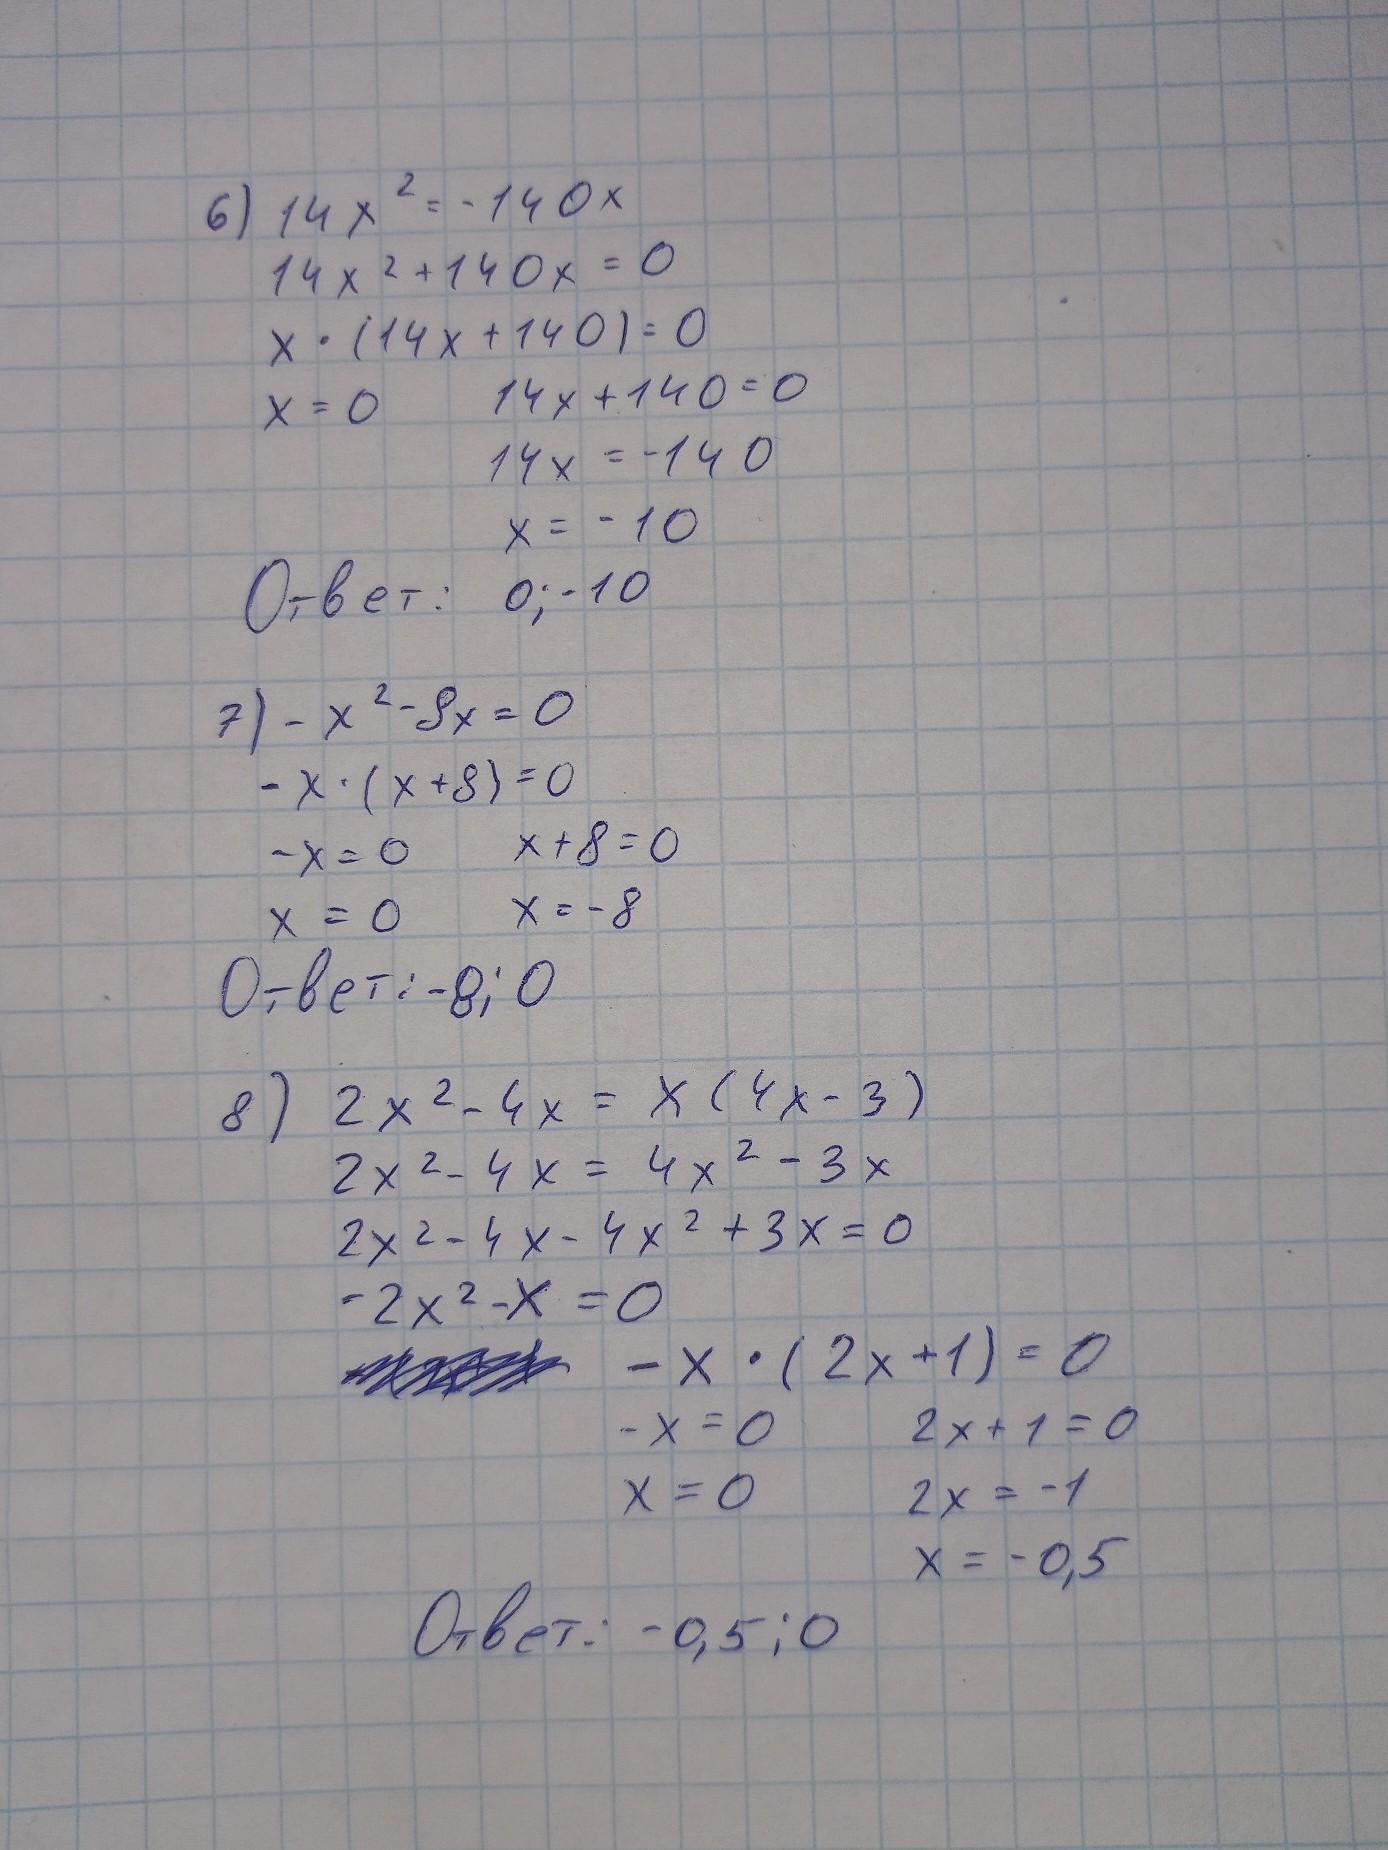 6) 14x² = -140x
14x² + 140x = 0
x · (14x + 140) = 0
x = 0 14x + 140 = 0
14x = -140
x = -10
Ответ: 0; -10
7) -x² - 8x = 0
-x · (x + 8) = 0
-x = 0 x + 8 = 0
x = 0 x = -8
Ответ: -8; 0
8) 2x² - 4x = x (4x - 3)
2x² - 4x = 4x² - 3x
2x² - 4x - 4x² + 3x = 0
-2x² - x = 0
-x · (2x + 1) = 0
-x = 0 2x + 1 = 0
x = 0 2x = -1
x = -0,5
Ответ: -0,5; 0